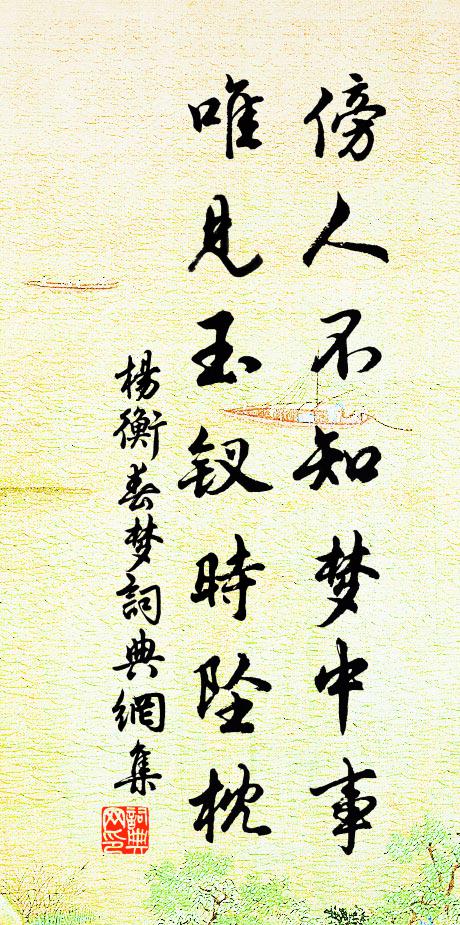 傍人不知梦中事
唯见玉钗時坠枕
楊衡春梦詞典網集
詞典网印